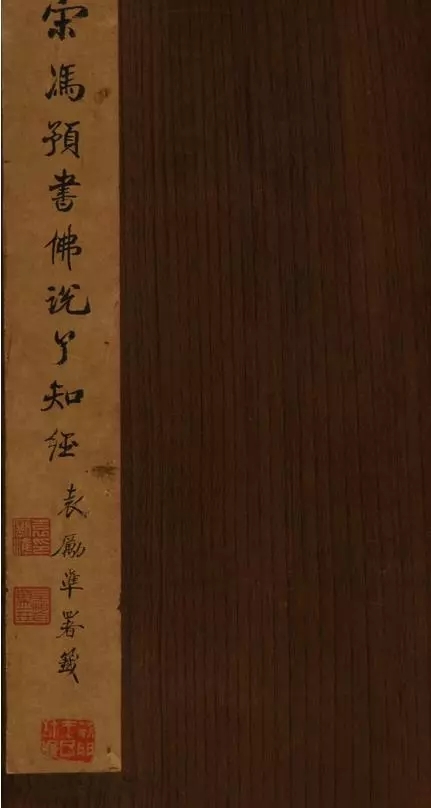 宋馮預書佛說知經
袁勵準署籤